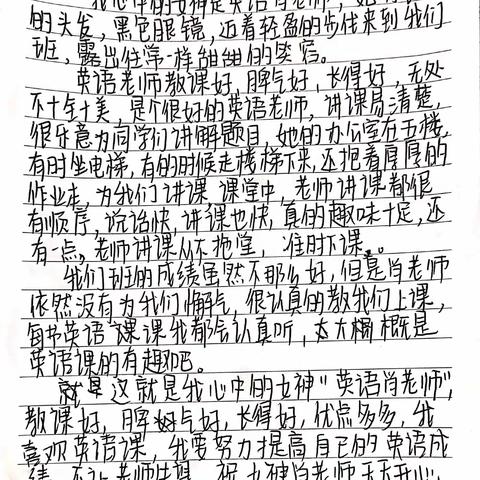 我心中的女神是英语肖老师,她
的头发,黑色眼镜,迈着轻盈的步伐来到我们
班,露出往常一样甜甜的笑容。
英语老师教课好,脾气好,长得好,无处
不十全十美,是个很好的英语老师,讲课易清楚,
很乐意为同学们讲解题目,她的办公室在五楼,
有时坐电梯,有的时候走楼梯下来,还抱着厚厚的
作业本,为我们讲课,课堂中,老师讲课都很
有顺序,说话快,讲课也快,真的趣味十足,还
有一点,老师讲课从不拖堂,准时下课。
我们班的成绩虽然不那么好,但是肖老师
依然没有为我们懈气,很认真的教我们上课,
每节英语课课我都会认真听,大概是
英语课的有趣吧。
就是这就是我心中的女神"英语肖老师",
教课好,脾好气好,长得好,优点多多,我
喜欢英语课,我要努力提高自己的英语成
绩,不让老师失望,祝女神肖老师天天开心,